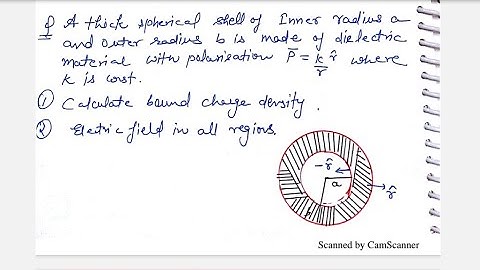 Q A thick spherical shell of Inner radius a
and outer radius b is made of dielectric
material with polarisation P̄ = k/r r̂ where
k is const.
① Calculate bound charge density.
② Electric field in all regions.
-r̂
a
r̂
b
Scanned by CamScanner